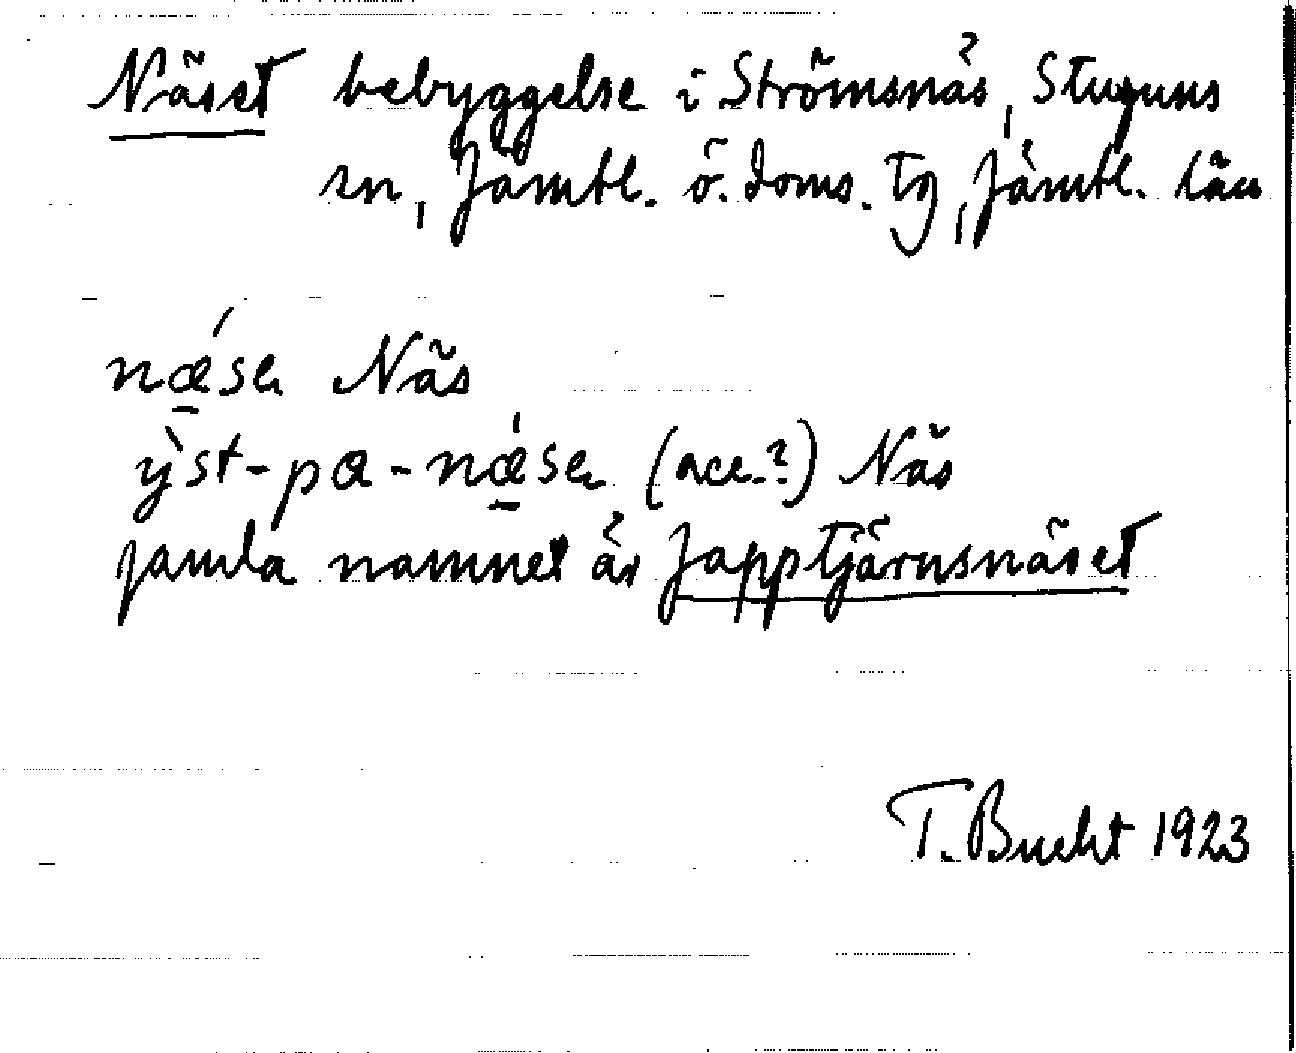 Näset bebyggelse i Strömsnäs, Stuguns
sn, Jämtl. ö. doms. tg, Jämtl. län
nǽ̱sen Näs
ỳst-pa-nǽ̱sen (acc.?) Näs
gamla namnet är Japptjärnsnäset
T. Bucht 1923